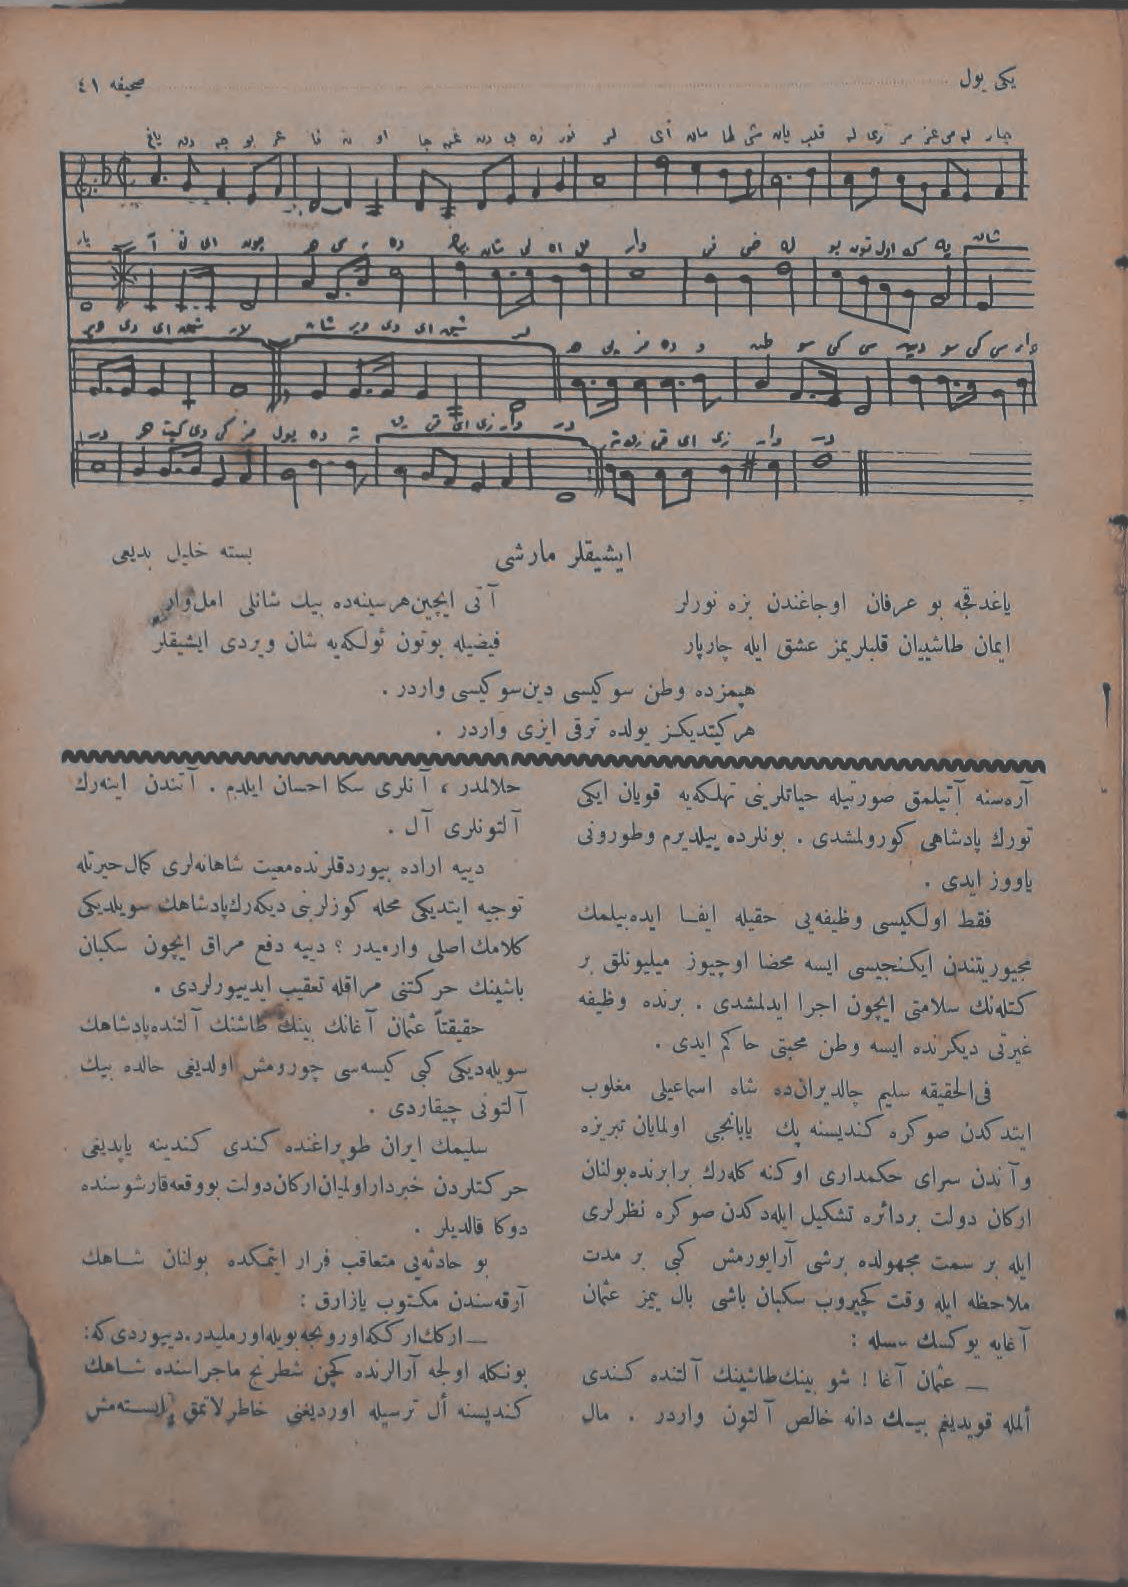 یکی یول
صحیفه ٤١
ایشیقلر مارشی
بسته خلیل بدیعی
یاغدقجه بو عرفان اوجاغندن بزه نورلر
آتی ایچین هر سینه‌ده بیك شانلی امل وار
ایمان طاشییان قلبلریمز عشق ایله چارپار
فیضیله بوتون ئولکه‌یه شان ویردی ایشیقلر
هپمزده وطن سوکیسی دین سوکیسی واردر .
هر کیتدیکز یولده ترقی ایزی واردر .
آره‌سنه آتیلمق صورتیله حیاتلرینی تهلکه‌یه قویان ایکی
تورك پادشاهی کورولمشدی . بونلرده ییلدیرم وطورونی
یاووز ایدی .
فقط اولکیسی وظیفه‌یی حقیله ایفا ایده‌بیلمك
مجبوریتندن ایکنجیسی ایسه محضا اوچیوز میلیونلق بر
کتله‌نك سلامتی ایچون اجرا ایدلمشدی . برنده وظیفه
غیرتی دیکرنده ایسه وطن محبتی حاکم ایدی .
فی‌الحقیقه سلیم چالدیران‌ده شاه اسماعیلی مغلوب
ایتدکدن صوکره کندیسنه پك یابانجی اولمایان تبریزه
وآندن سرای حکمداری اوکنه کله‌رك برابرنده بولنان
ارکان دولت بردائره تشکیل ایله‌دکدن صوکره نظرلری
ایله بر سمت مجهولده برشی آرایورمش کبی بر مدت
ملاحظه ایله وقت کچیروب سکبان باشی بال یمز عثمان
آغایه یوکسك سسله :
— عثمان آغا ! شو بینك طاشینك آلتنده کندی
ألمله قویدیغم بیك دانه خالص آلتون واردر . مال
حلالمدر ، آنلری سکا احسان ایلدم . آتندن اینه‌رك
آلتونلری آل .
دییه اراده بیوردقلرنده معیت شاهانه‌لری کمال حیرتله
توجیه ایتدیکی محله کوزلرینی دیکه‌رك پادشاهك سویلدیکی
کلامك اصلی وارمیدر ؟ دییه دفع مراق ایچون سکبان
باشینك حرکتنی مراقله تعقیب ایدییورلردی .
حقیقتاً عثمان آغانك بینك طاشنك آلتنده پادشاهك
سویله‌دیکی کبی کیسه‌سی چورومش اولدیغی حالده بیك
آلتونی چیقاردی .
سلیمك ایران طوپراغنده کندی کندینه یاپدیغی
حرکتلردن خبردار اولمیان ارکان دولت بو وقعه قارشوسنده
دوکا قالدیلر .
بو حادثه‌یی متعاقب فرار ایتمکده بولنان شاهك
آرقه‌سندن مکتوب یازارق :
— ارکك ارککه اورونجه بویله اورملیدر . دییوردی که :
بونکله اولجه آرالرنده کچن شطرنج ماجراسنده شاهك
کندیسنه أل ترسیله اوردیغنی خاطرلاتمق ایسته‌مش